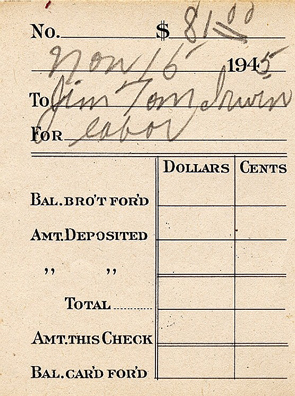 No. $ 81.00
Nov 15 1945
To Jim Tom Irwin
For labor
DOLLARS CENTS
BAL. BRO'T FOR'D
AMT. DEPOSITED
„ „
TOTAL ..........
AMT. THIS CHECK
BAL. CAR'D FOR'D